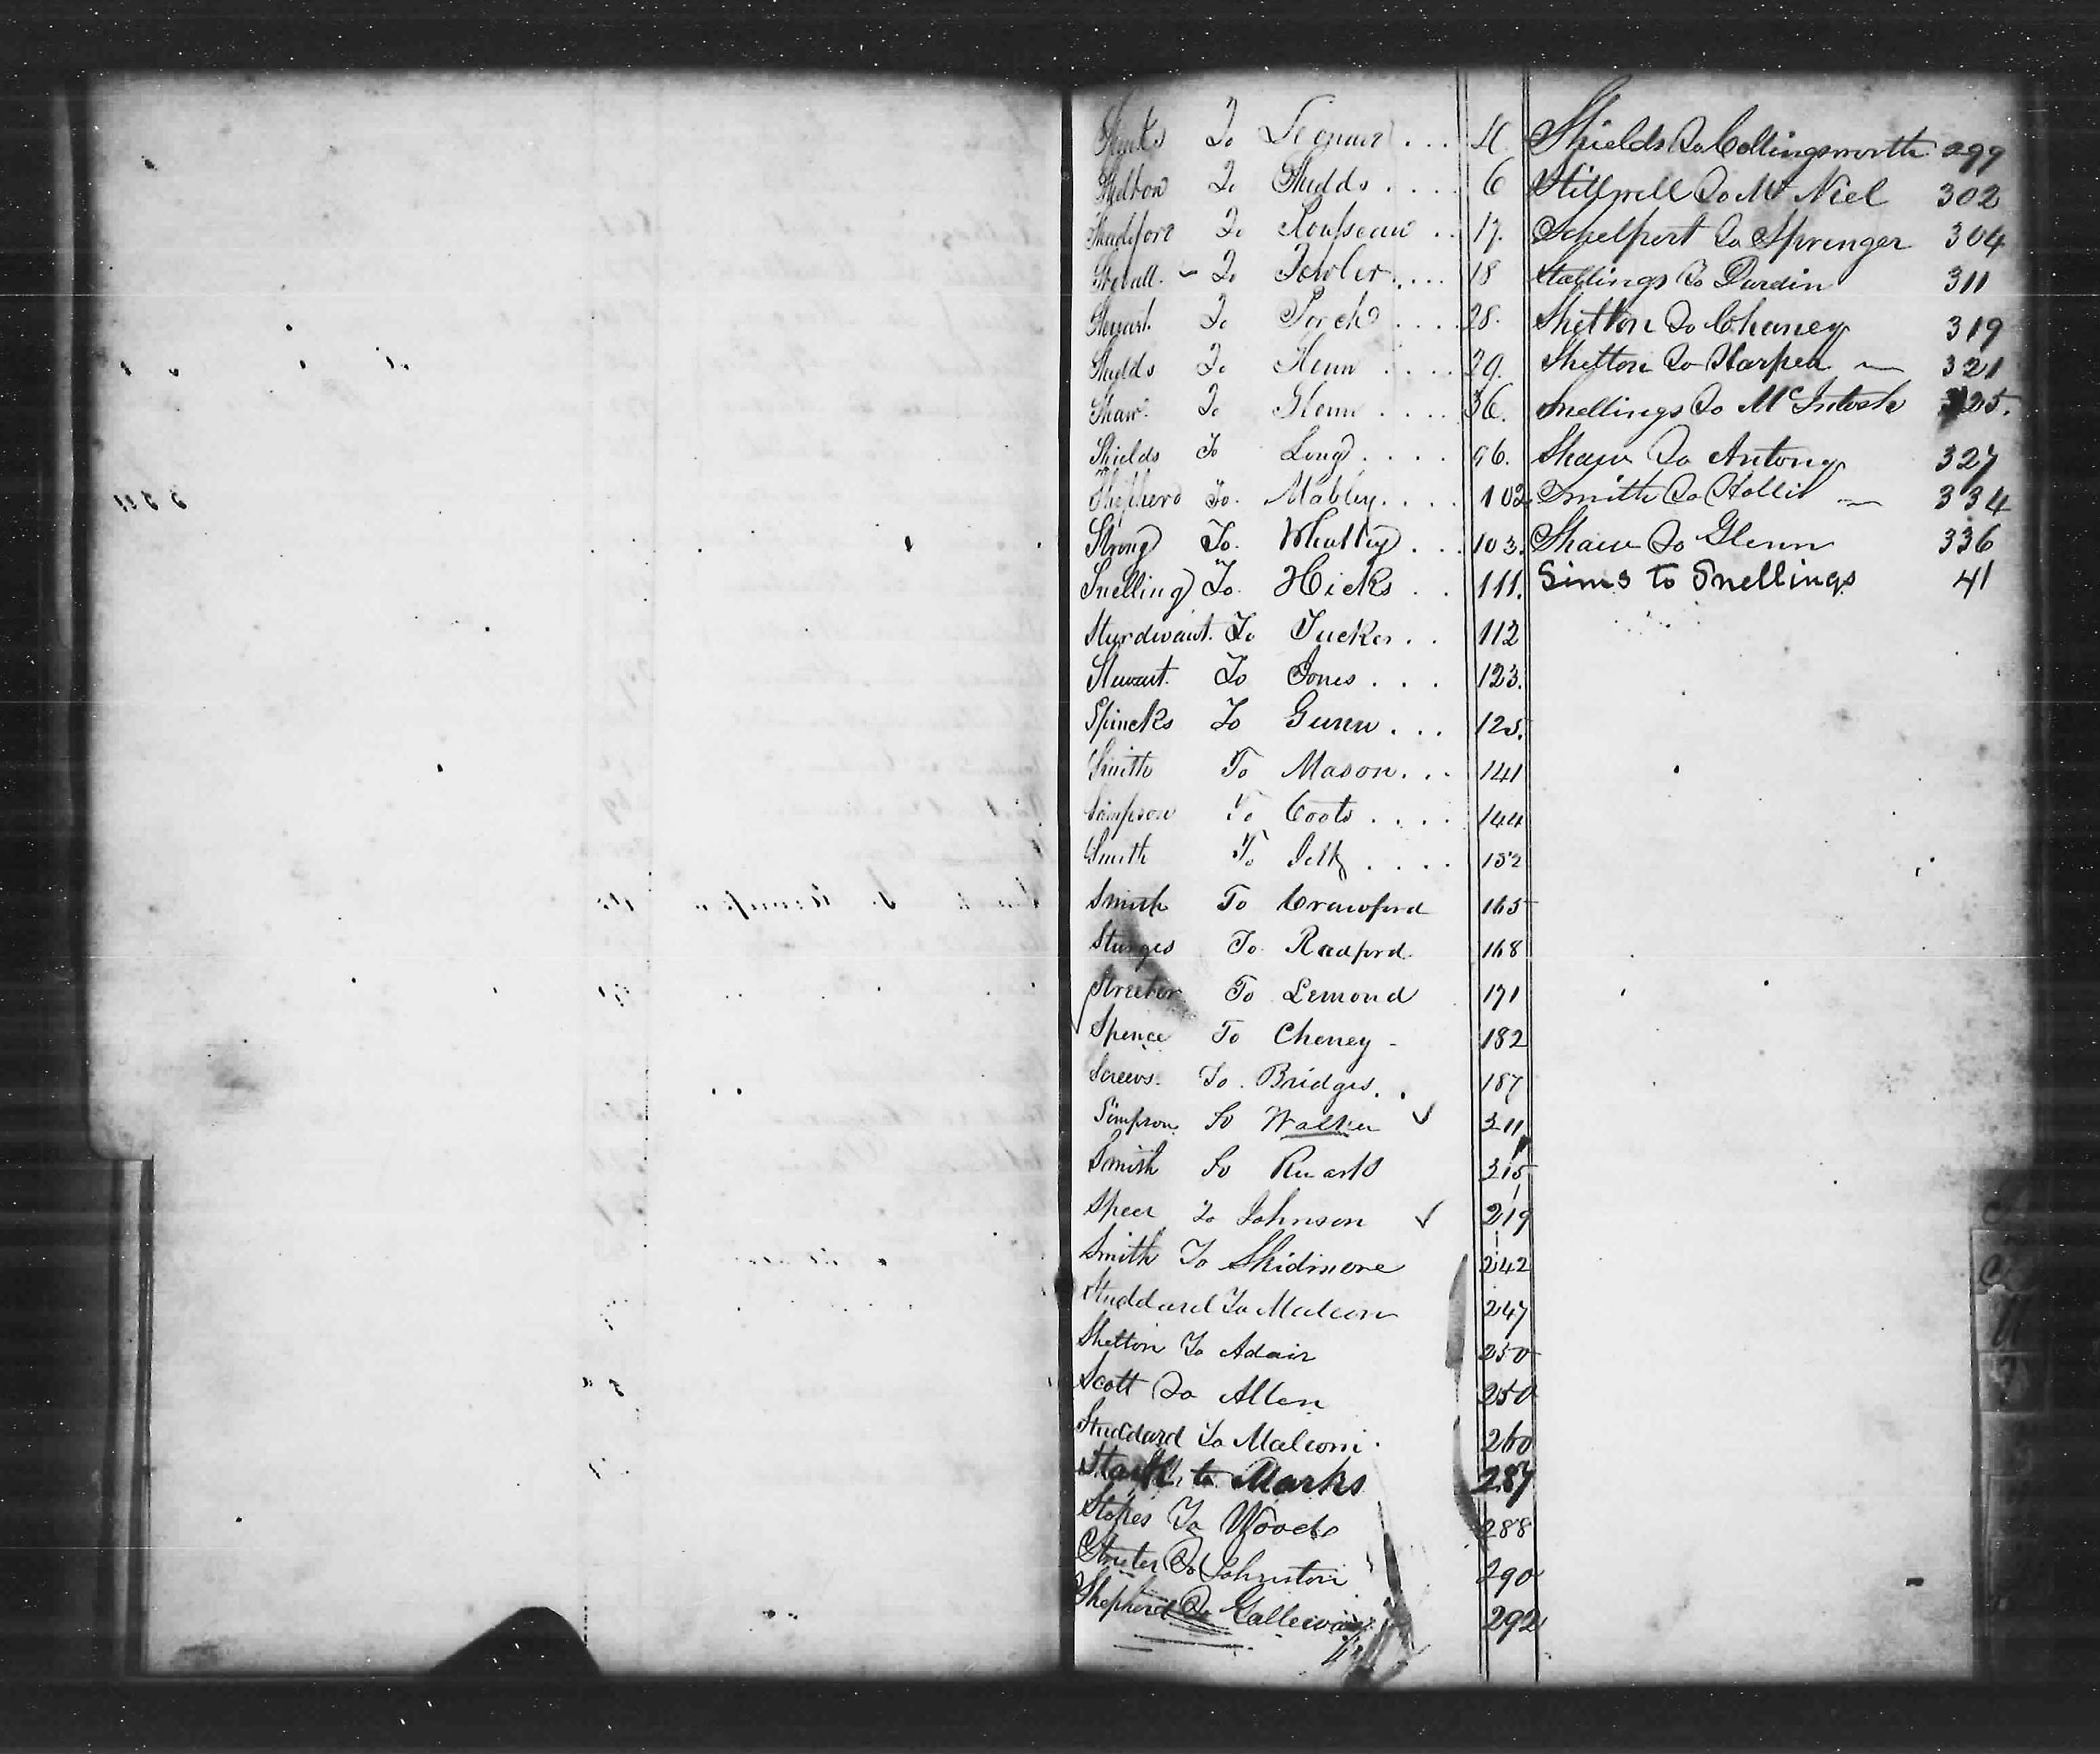 To . . . 4.
Shelton To Shedds . . . . 6
To Rousseau . . 17.
To Fowler . . . . 18
Stewart To . . . . 28.
Shedds To . . . . 29.
Shaw To Glenn . . . . 36.
Shields To Long . . . . 96.
Shepherd To. Mabley . . . . 102
Strong To. Whatley . . . 103.
Snelling To. Hicks . . 111.
Sturdivant. To Tucker . . 112
Stewart. To Jones . . . 123.
Spincks To Gunn . . . 125.
Smith To Mason . . . 141
Simpson To Coots . . . . 144
Smith To . . . . 152
Smith To Crawford 165
Sturges To Radford 168
Streeter To Lemond 171
Spence To Cheney - 182
Screws. To. Bridges . . 187
Simpson To Walker ✓ 211
Smith To 215
Speer To Johnson ✓ 219
Smith To Skidmore 242
Studdard To Malcom 247
Shelton To Adair 250
Scott To Allen 250
Studdard To Malcom. 260
Stark, to Marks 287
Stokes To Woods 288
Streter To Johnston 290
Shepherd To Gallewav 292
Shields To Collingsworth 299
Stillwell To Mc Niel 302
Schelpert To Sprenger 304
Stallings To Durdin 311
Shelton To Chaney 319
Shelton To Harper — 321
Snellings To McIntosh 325.
Shaw To Antony 327
Smith To Hollis — 334
Shaw To Glenn 336
Sims to Snellings 41